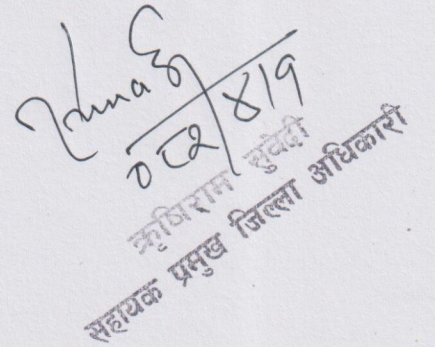 ०८२/४/९
ऋषिराम सुवेदी
सहायक प्रमुख जिल्ला अधिकारी